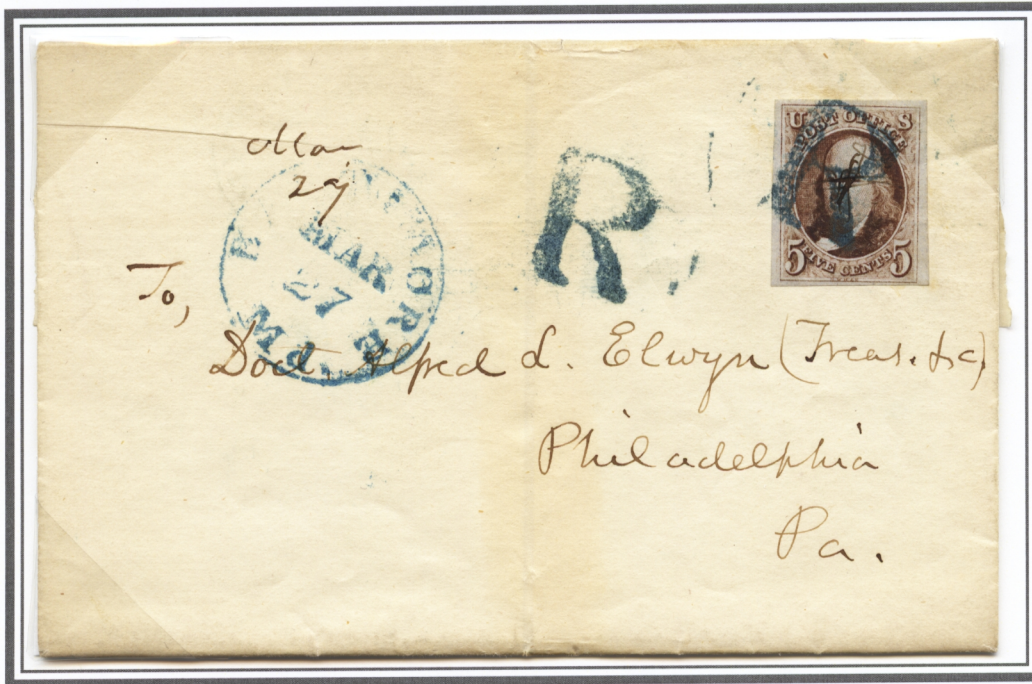 Mar
27
BALTIMORE Md.
MAR
27
R
U S
POST OFFICE
5 FIVE CENTS 5
To,
Doct. Alfred L. Elwyn (Treas. &c)
Philadelphia
Pa.